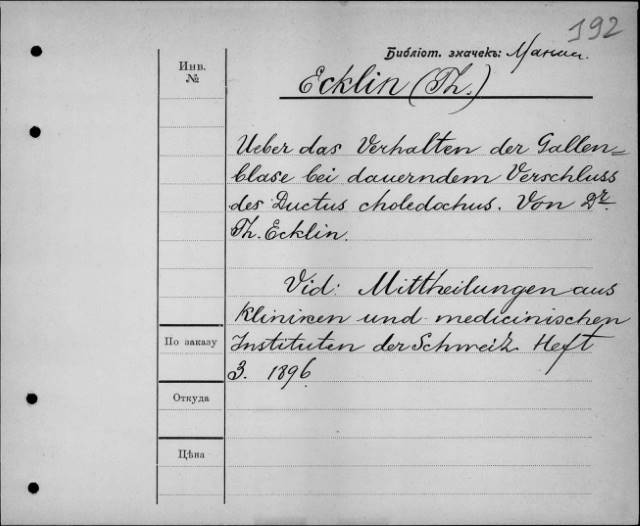 192
Библіот. значекъ:
Инв.
№
Ecklin (Th.)
Ueber das Verhalten der Gallen=
blase bei dauerndem Verschluss
des Ductus choledochus. Von Dr.
Th. Ecklin.
Vid: Mittheilungen aus
Kliniken und medicinischen
По заказу
Instituten der Schweiz Heft
3. 1896
Откуда
Цѣна